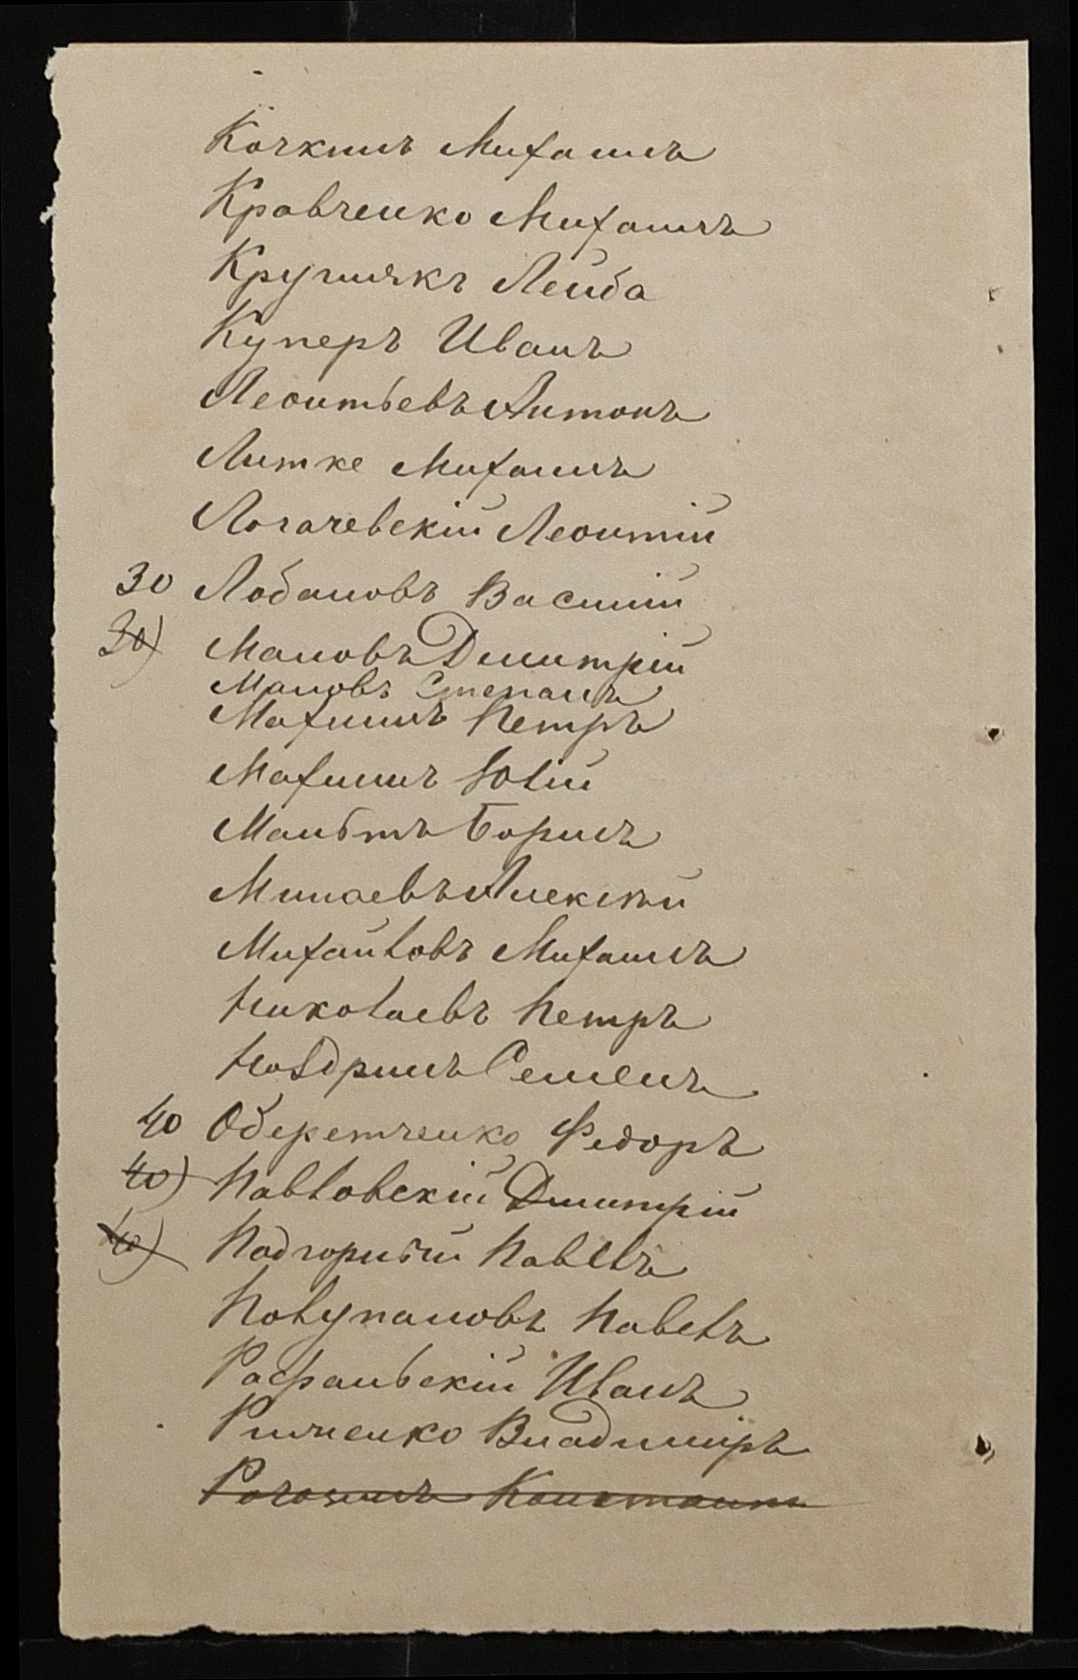 Кочкинъ Михаилъ
Кравченко Михаилъ
Кругликъ Лейба
Куперъ Иванъ
Леонтьевъ Антонъ
Литке Михаилъ
Логачевскій Леонтій
30 Лобановъ Василій
30) Мановъ Дмитрій
Мановъ Степанъ
Махнинъ Петръ
Махнинъ Юлій
Мантъ Борисъ
Минаевъ Алексѣй
Михайловъ Михаилъ
Николаевъ Петръ
Ноздринъ Семенъ
40 Оберетченко Федоръ
40) Павловскій Дмитрій
40) Подгорный Павелъ
Полупановъ Павелъ
Рафальскій Иванъ
Ринченко Владиміръ
Рогозинъ Константинъ